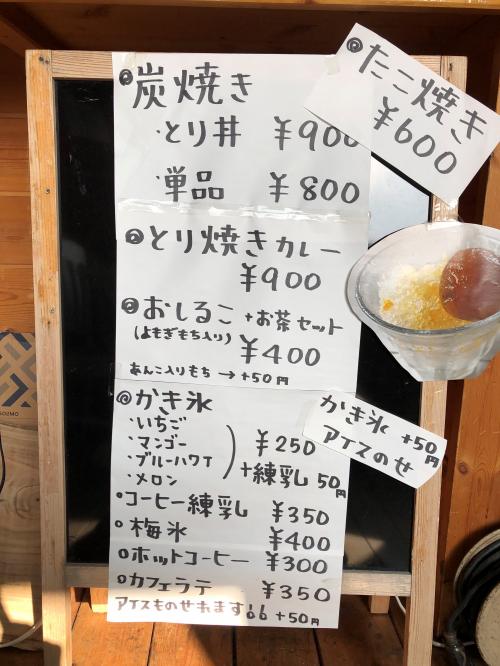 炭焼き
・とり丼 ¥900
・単品 ¥800
とり焼きカレー
¥900
おしるこ +お茶セット
(よもぎもち入り) ¥400
あんこ入りもち → +50円
たこ焼き
¥600
かき氷
・いちご
・マンゴー
・ブルーハワイ
・メロン
¥250
+練乳 50円
かき氷 +50円
アイスのせ
コーヒー練乳 ¥350
梅氷 ¥400
ホットコーヒー ¥300
カフェラテ ¥350
アイスものせれます +50円